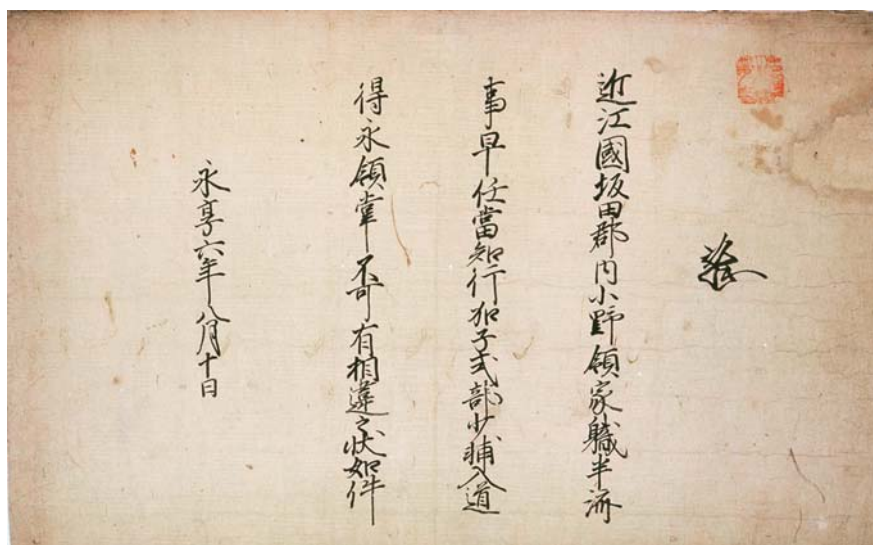 近江國坂田郡内小野領家職半済
事早任當知行佐々木加子式部少輔入道
得永領掌不可有相違之状如件
永享六年八月十日